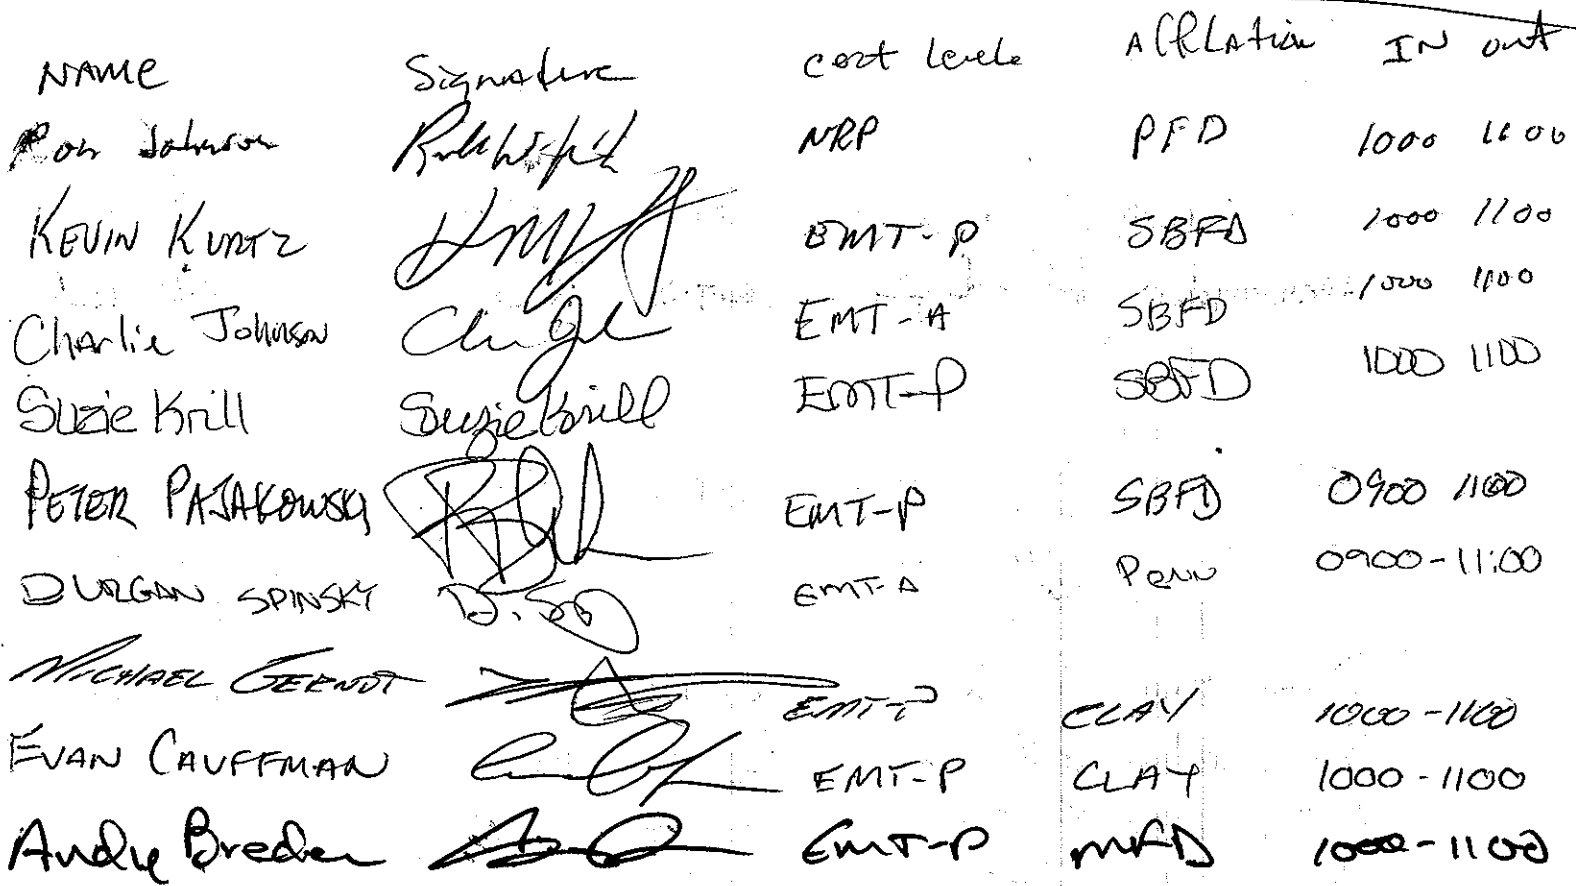 NAME Signature cert levele Affilation IN out
Ron Johnson NRP PFD 1000 1100
KEVIN KURTZ EMT-P SBFD 1000 1100
Charlie Johnson EMT-A SBFD 1000 1100
Suzie Krill Suzie Krill EMT-P SBFD 1000 1100
PETER PAJAKOWSKI EMT-P SBFD 0900 1100
DURGAN SPINSKY EMT-A Penn 0900-11:00
MICHAEL GEENDT EMT-P CLAY 1000-1100
EVAN CAUFFMAN EMT-P CLAY 1000-1100
Andy Breden EMT-P MFD 1000-1100